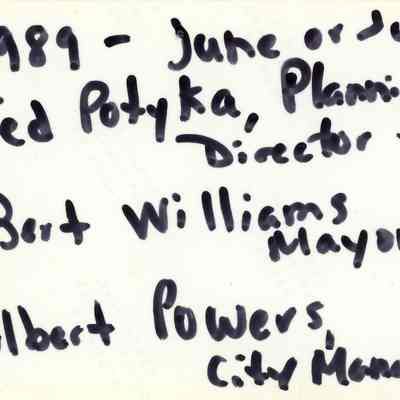 989 - June or Ju
ed Potyka, Planni
Director
Bert Williams
Mayor
lbert Powers,
City Mana